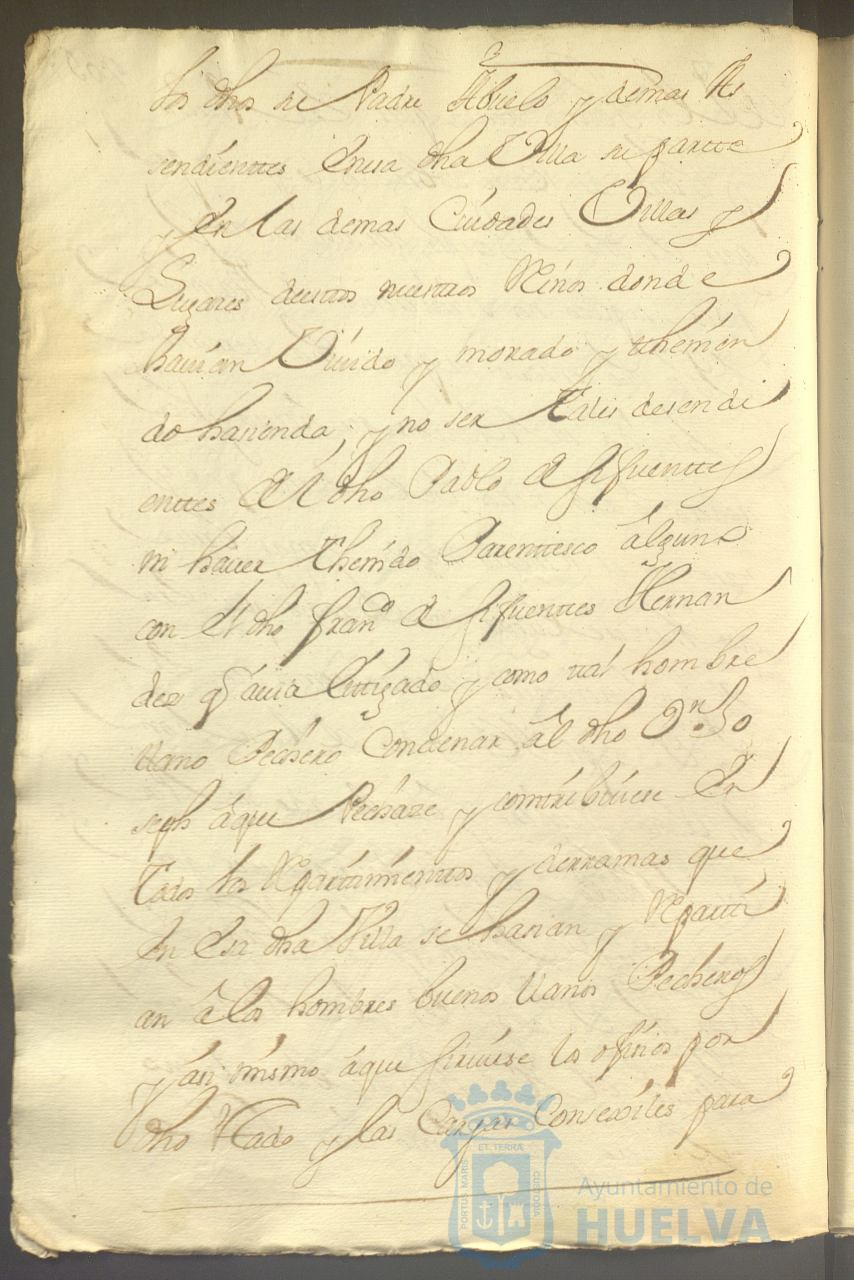 los dhos su Padre Abuelo y demas As
sendienttes en esa dha Villa su partte
y en las demas Ciudades Villas y
Lugares destos nuestros Reinos donde
havian Vivido y morado y thenien
do hasienda, y no ser tales desendi
enttes del dho Pablo de Sifuenttes
ni haver thenido Parenttesco alguno
con el dho Franco de Sifuenttes Hernan
dez q havia littigado y como tal hombre
llano Pechero Condenar al dho Dn Jo
seph a que Pechase y contribuiese En
todos los Repartimientos y derramas que
En Esa dha Villa se hasian y Reparti
an a los hombres buenos llanos Pecheros
y asi mismo a que sirviese los ofisios por
dho Estado y las Cargas Consexiles para
PORTUS MARIS
ET TERRÆ
CUSTODIA
Ayuntamiento de
HUELVA